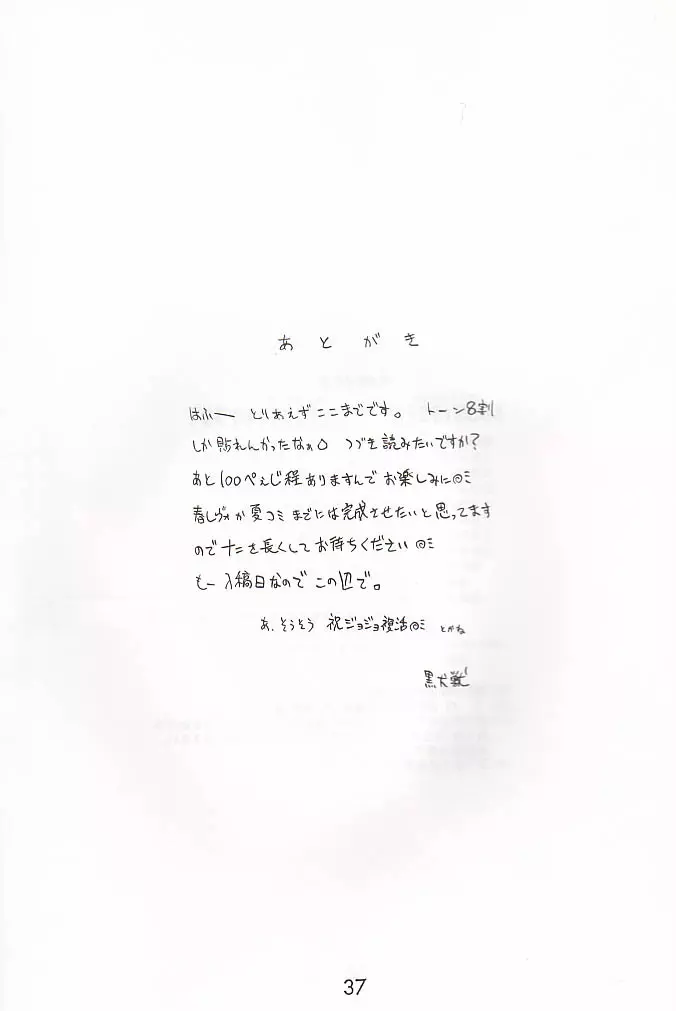 あとがき
はふー とりあえずここまでです。 トーン8割
しか貼れんかったなぁ。 つづき読みたいですか?
あと100ぺぇじ程ありますんで お楽しみに◎ミ
春レヴォか夏コミまでには完成させたいと思ってます
ので 十二を長くしてお待ちください◎ミ
もー入稿日なので この辺で。
あ、そうそう 祝ジョジョ復活◎ミ とかね
黒犬獣
37